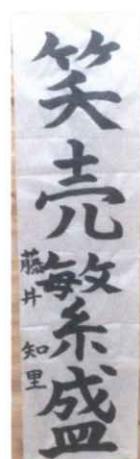 笑売繁盛
藤井 知里